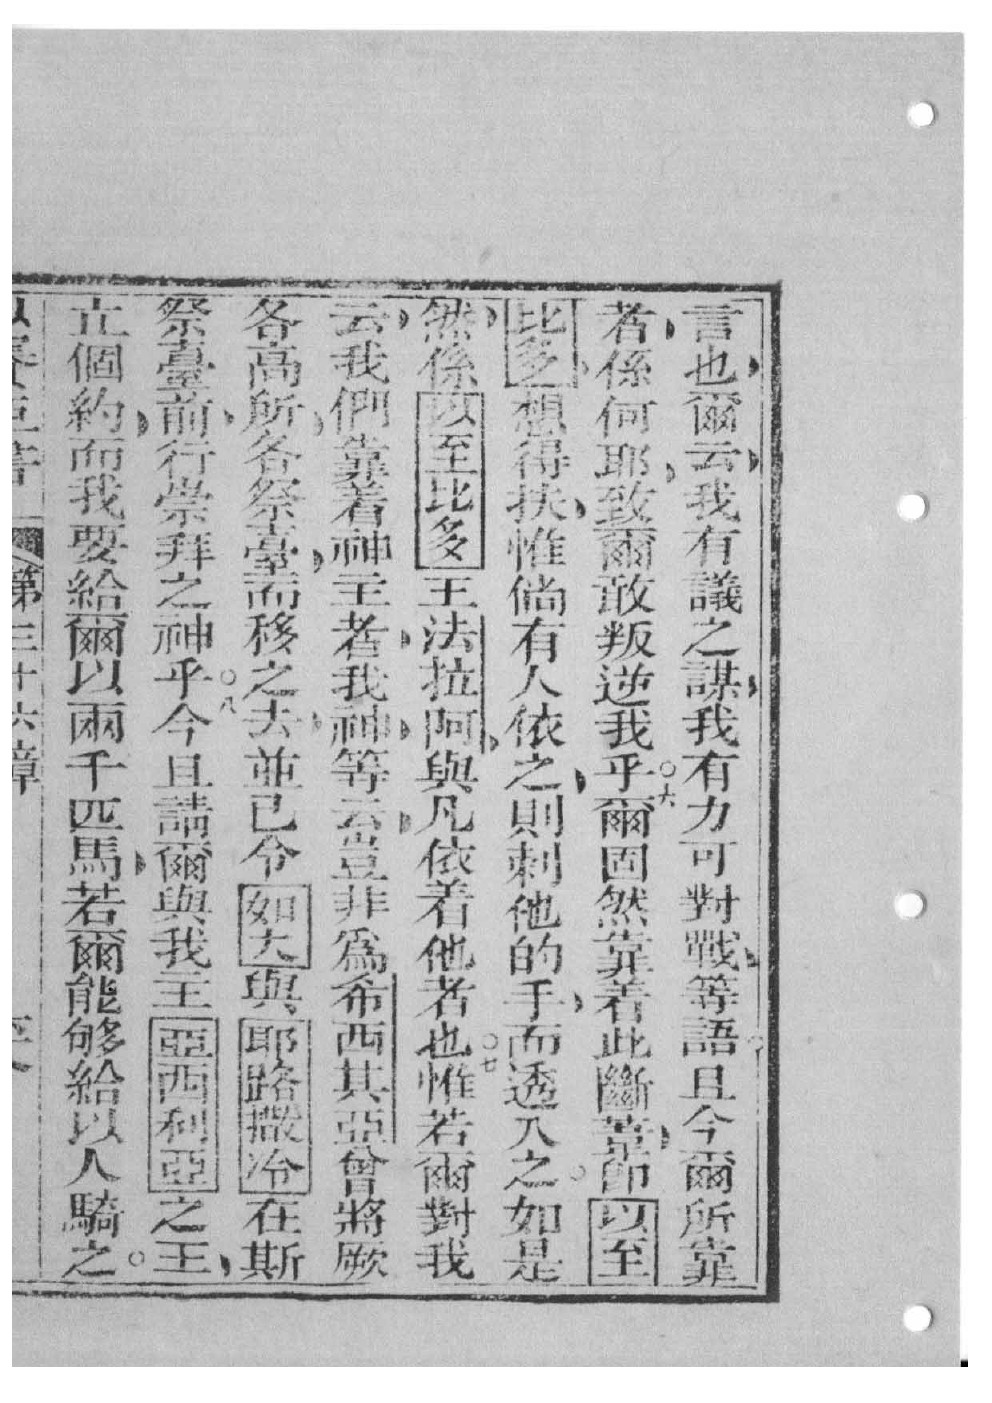 言也爾云我有議之謀我有力可對戰等語且今爾所靠
者係何耶致爾敢叛逆我乎○六爾固然靠着此斷葦即以至
比多想得扶惟倘有人依之則刺他的手而透入之如是
然係以至比多王法拉阿與凡依着他者也○七惟若爾對我
云我們靠着神主者我神等云豈非爲希西其亞曾將厥
各高所各祭臺而移之去並已令如大與耶路撒冷在斯
祭臺前行崇拜之神乎○八今且請爾與我主亞西利亞之王
立個約而我要給爾以兩千匹馬若爾能够給以人騎之
第三十六章